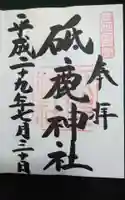 奉拝
砥鹿神社
平成二十九年七月三十日